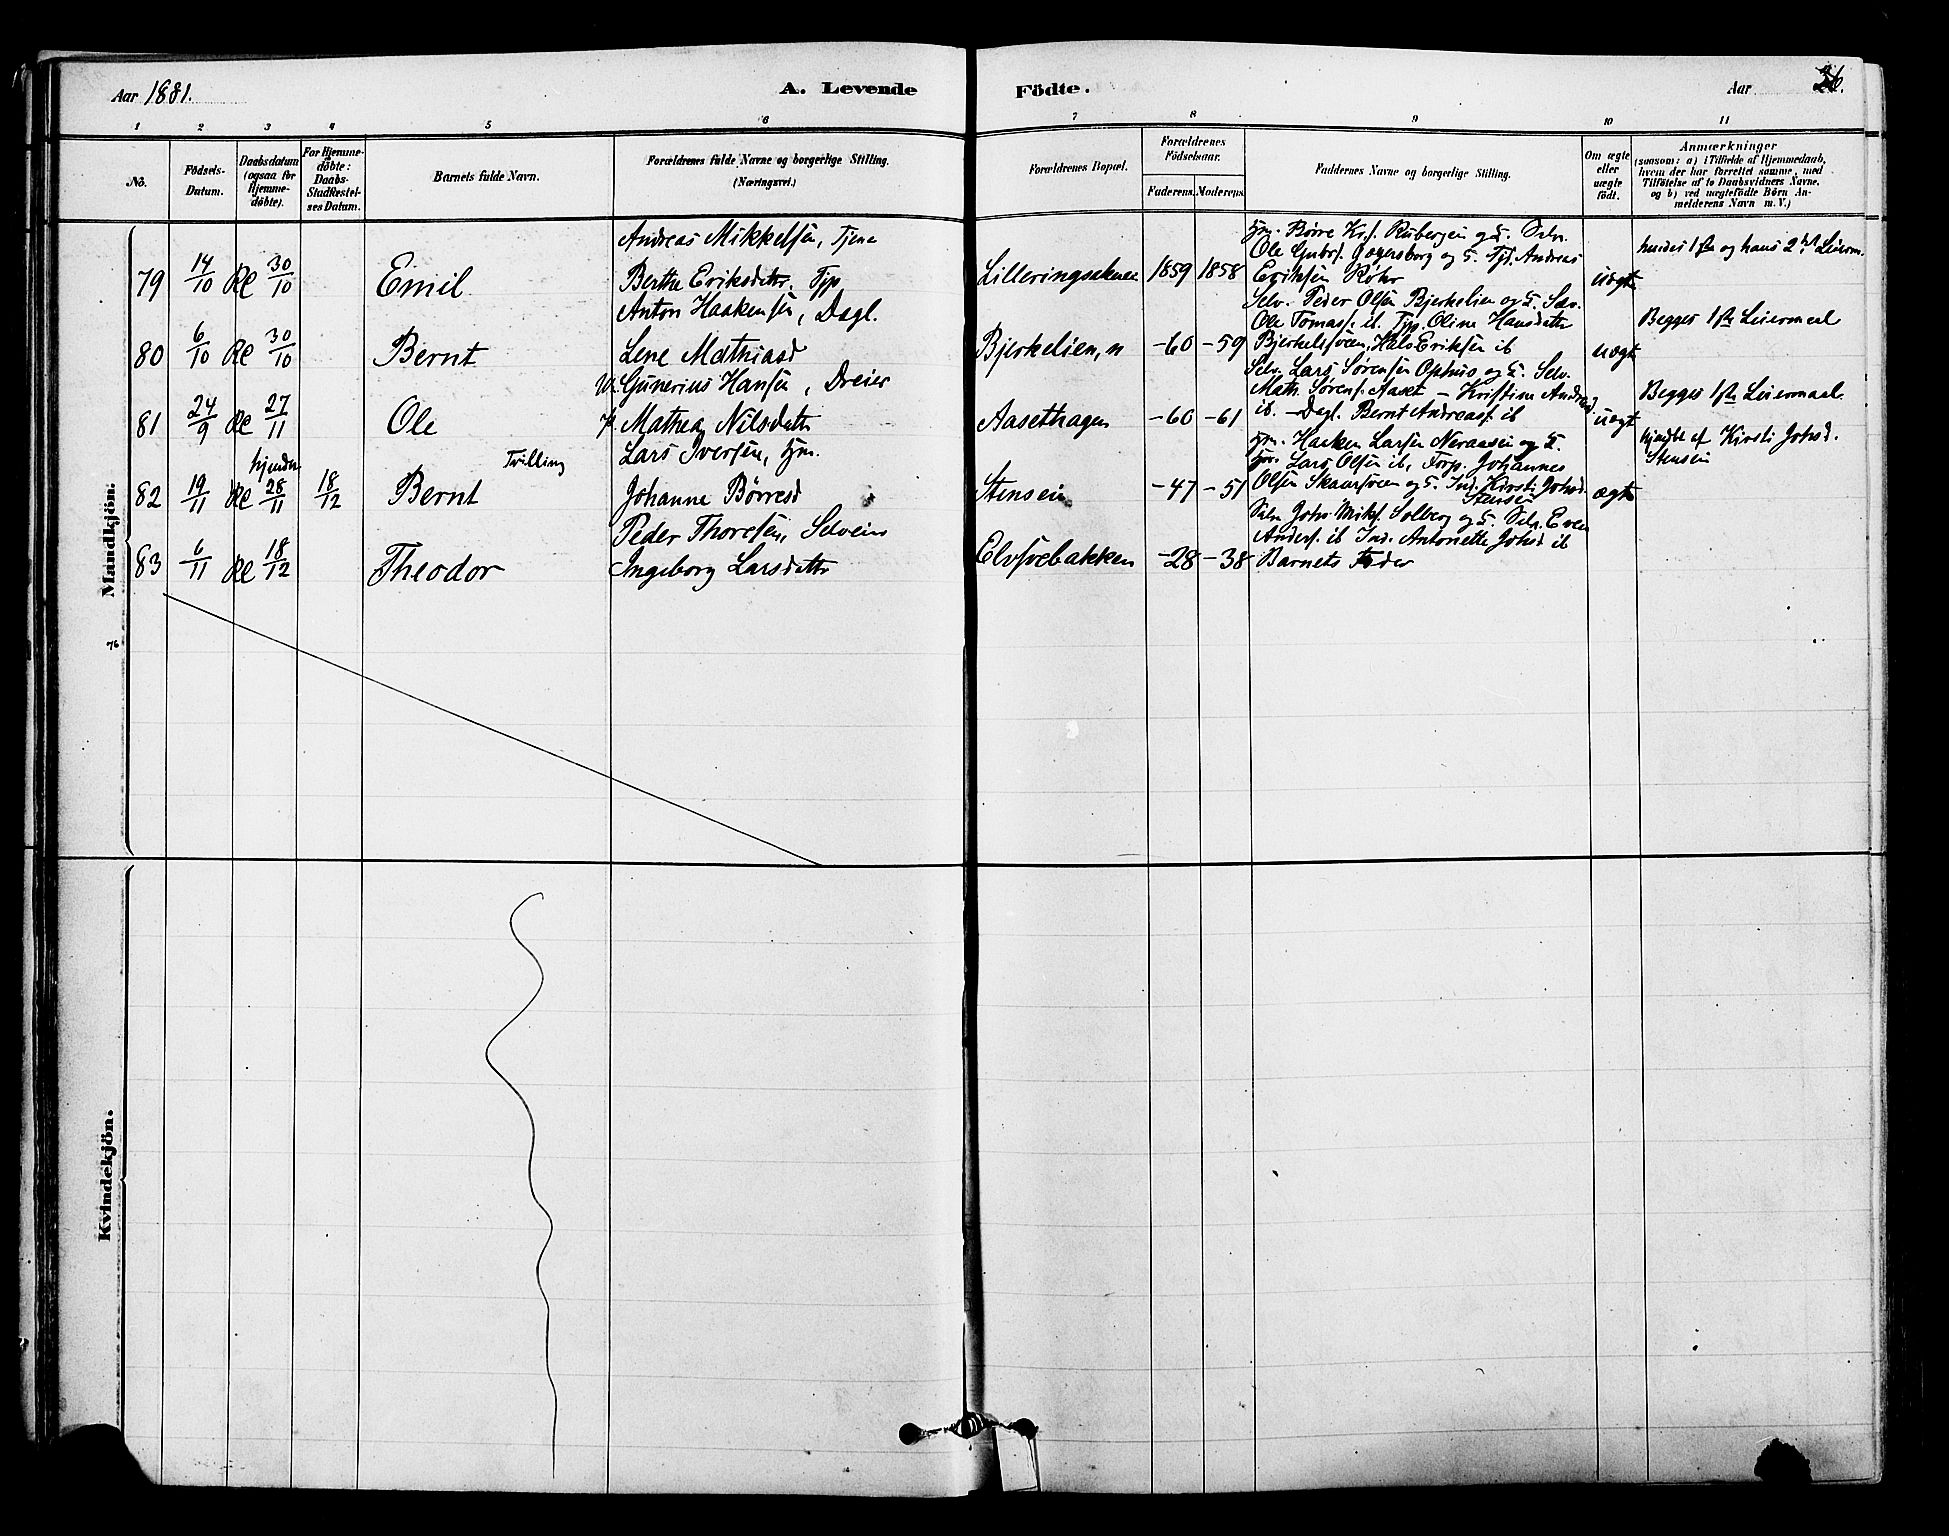 Aar 1881.
A. Levende
Födte.
Aar
26.
1 2 3 4 5 6 7 8 9 10 11
No.
Födsels-
Datum.
Daabsdatum
(ogsaa for
Hjemme-
döbte).
For Hjemme-
döbte:
Daabs-
Stadfæstel-
ses Datum.
Barnets fulde Navn.
Forældrenes fulde Navne og borgerlige Stilling.
(Næringsvei.)
Forældrenes Bopæl.
Forældrenes
Födselsaar.
Faderens. Moderens.
Faddernes Navne og borgerlige Stilling.
Om ægte
eller
uægte
födt.
Anmærkninger
(saasom: a) i Tilfælde af Hjemmedaab,
hvem der har forrettet samme, med
Tilföielse af to Daabsvidners Navne,
og b) ved uægtefödte Börn An-
melderens Navn m. V.)
Mandkjön.
79
14/10
30/10
Emil
Andreas Mikkelsen, Tjene
Berthe Eriksdatter, Tjp
1859 1858
Ole Gulbrs.
og F. Tjt. Andreas
Eriksen Røhr
uægte
hendes 1ste og hans 2det Leierm.
80
6/10
30/10
Bernt
Anton Haakensen, Dagl.
Lene Mathiasd
Bjerkelien, n
-60 -59
Selv. Peder Olsen Bjerkelien og F. Selv.
Ole Tomass. ib. Tjp. Oline Hansdatter
Eriksen ib
uægte
Begges 1ste Leiermaal
81
24/9
27/11
Ole
U. Gunerius Hansen, Dreier
P. Mathea Nilsdatter
Aasethagen
-60 -61
Selv. Lars Sørensen Ophus og F. Selv.
Math. Sørens. Aaset - Kristine Andreasd
ib. - Dagl. Bernt Andreass. ib
uægt
Begges 1ste Leiermaal.
82
19/11
hjemdøbt
28/11
18/12
Bernt
Tvilling
Lars Iversen, Hjm.
Johanne Børresd
Stenseie
-47 -51
Hjm. Haaken Larsen Neraasen og F.
Lars Olsen ib, Forp. Johannes
Olsen Skaarsveen og F. Ind. Kirsti Johsd.
Stenseie
ægte
hjmdbt af Kirsti Johsd.
Stenseie
83
6/11
18/12
Theodor
Peder Thoresen, Selveier
Ingeborg Larsdatter
Elvsvebakken
-28 -38
Selv Johs Miks. Solberg og F. Selv. Even
Anders. ib Ind. Antoniette Johsd ib
Barnets Fader
76
Kvindekjön.